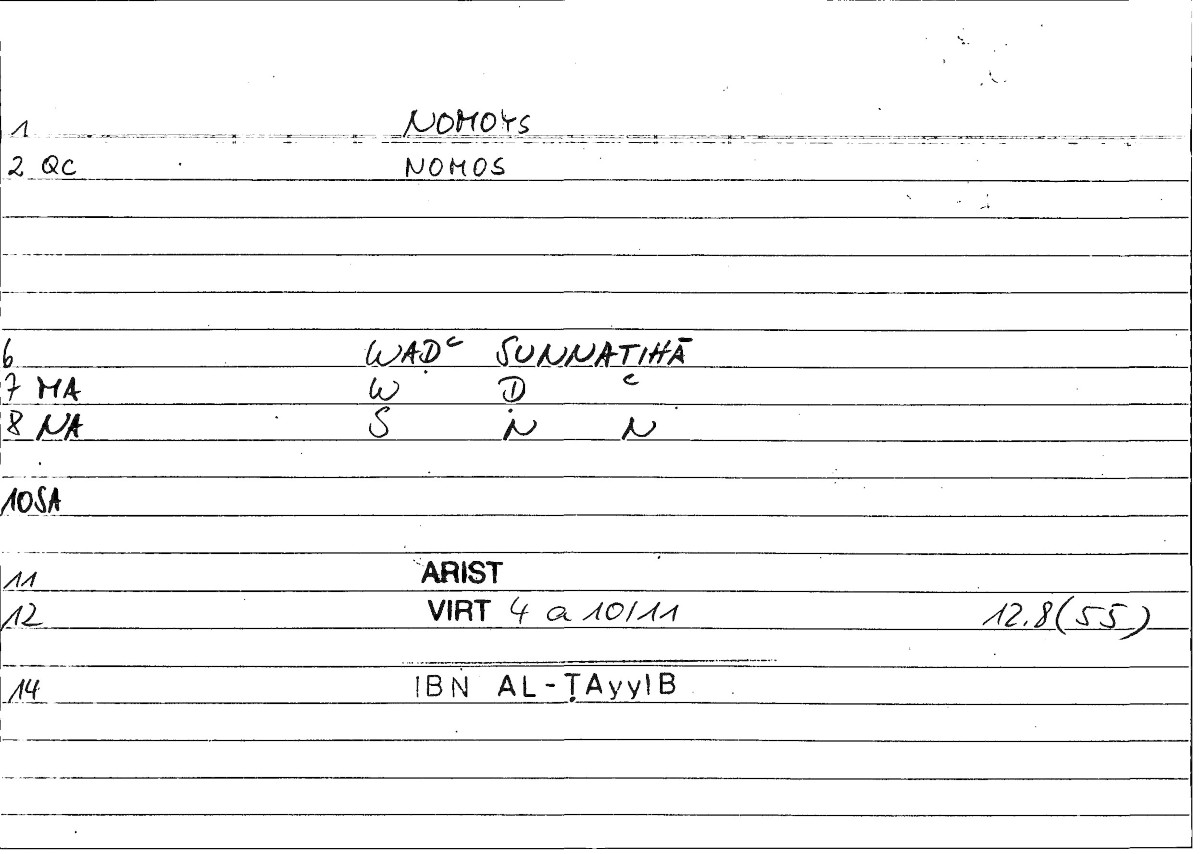 1 NOMOYS
2 QC NOMOS
6 WAḌʿ SUNNATIHĀ
7 MA W Ḍ ʿ
8 NA S N N
10 SA
11 ARIST
12 VIRT 4 a 10/11 12.8(55)
14 IBN AL-ṬAyyIB